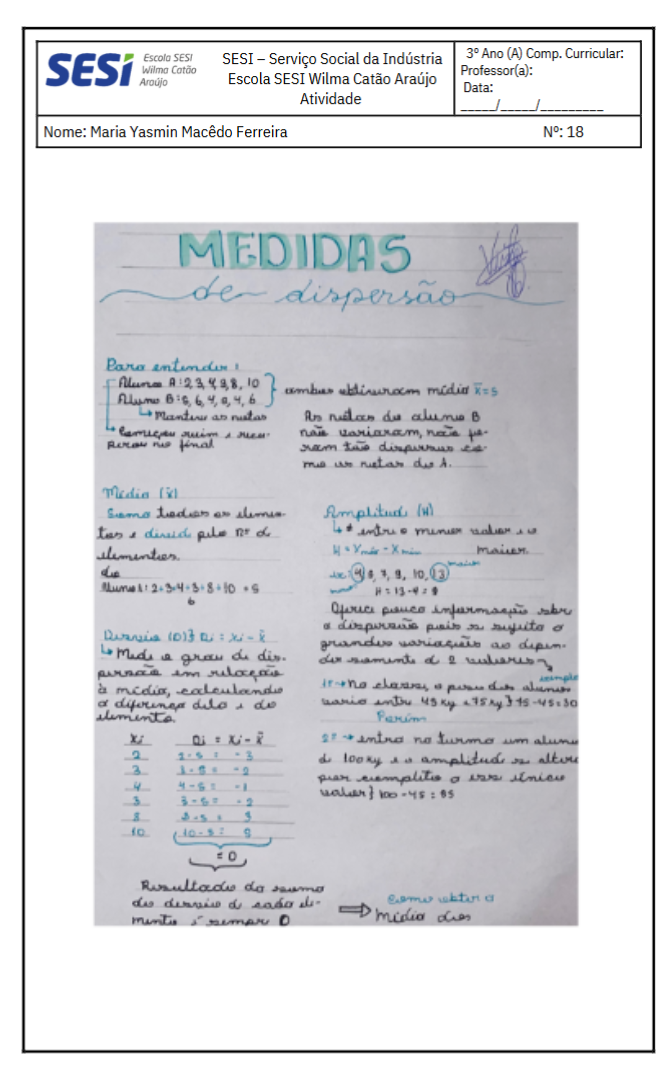 SESI
Escola SESI
Wilma Catão
Araújo
SESI – Serviço Social da Indústria
Escola SESI Wilma Catão Araújo
Atividade
3º Ano (A) Comp. Curricular:
Professor(a):
Data:
_____/_____/_________
Nome: Maria Yasmin Macêdo Ferreira Nº: 18
MEDIDAS
de dispersão
Para entender:
Aluno A: 2, 3, 4, 3, 8, 10
Aluno B: 5, 6, 4, 4, 6
ambos obtiveram média x̄=5
Manteve as notas
Começou ruim e recu-
perou no final
As notas do aluno B
não variaram, não fo-
ram tão dispersas co-
mo as notas do A.
Média (x̄)
Soma todos os elemen-
tos e divide pelo nº de
elementos.
Aluno A: 2+3+4+3+8+10 = 5
6
Desvio (D) Di = xi - x̄
Mede o grau de dis-
persão em relação
à média, calculando
a diferença dela e do
elemento.
xi Di = xi - x̄
2 2-5 = -3
3 3-5 = -2
4 4-5 = -1
3 3-5 = -2
8 8-5 = 3
10 10-5 = 5
= 0
Resultado da soma
do desvio de cada ele-
mento é sempre 0
Amplitude (H)
≠ entre o menor valor e o
maior.
H = Xmáx - Xmin
ex: 4, 8, 7, 9, 10, 13 maior
menor H = 13-4 = 9
Oferece pouca informação sobre
a dispersão pois se sujeita a
grandes variações ao depen-
der somente de 2 valores
exemplo
1º → na classe, o peso dos alunos
varia entre 45kg e 75kg } 75-45=30
Porém
2º → entra na turma um aluno
de 100kg e a amplitude se altera
por completo a esse único
valor } 100-45 = 55
⇒ Como obter a
média dos